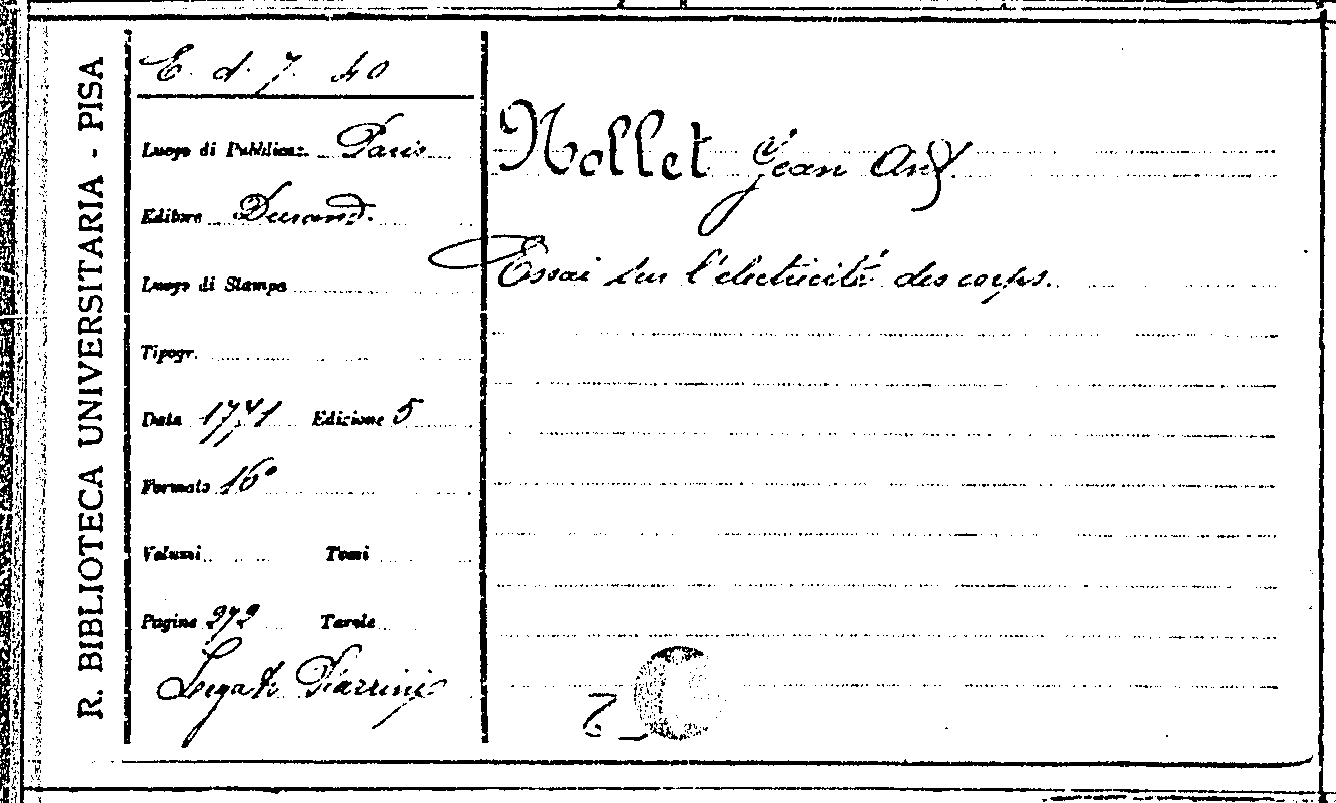 R. BIBLIOTECA UNIVERSITARIA - PISA
E. d. 7. 40
Luogo di Pubblicaz. Paris
Editore Durand.
Luogo di Stampa
Tipogr.
Data 1771 Edizione 5
Formato 16°
Volumi Tomi
Pagine 272 Tavole
Legato Piazzini
Nollet Jean Ant.
Essai sur l'électricité des corps.
2